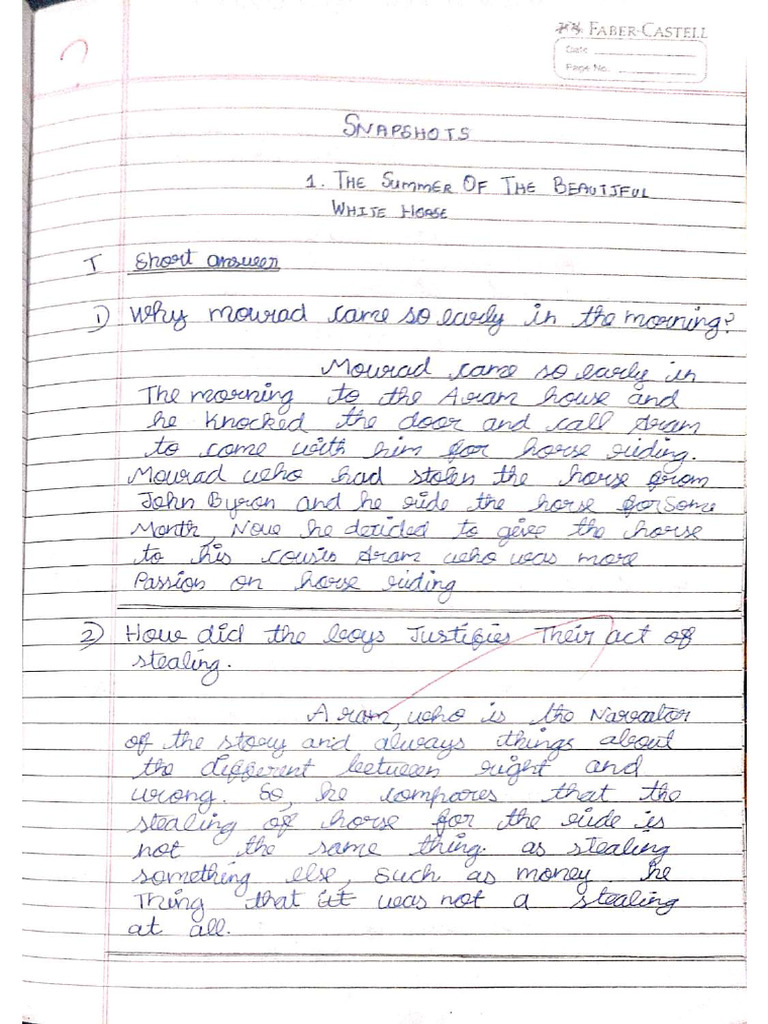 FABER-CASTELL
Date
Page No.
SNAPSHOTS
1. THE SUMMER OF THE BEAUTIFUL
WHITE HORSE
I Short answer
1) Why mourad came so early in the morning?
Mourad came so early in
The morning to the Aram house and
he knocked the door and call Aram
to come with him for horse riding.
Mourad who had stolen the horse from
John Byron and he ride the horse for some
Month, Now he decided to give the horse
to his cousis Aram who was more
Passion on horse riding
2) How did the boys Justifies Their act of
stealing.
Aram, who is the Narrator
of the story and always things about
the different between right and
wrong. So, he compares that the
stealing of horse for the ride is
not the same thing. as stealing
something else, such as money he
Thing that it was not a stealing
at all.